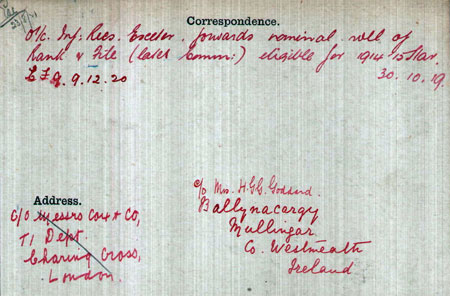 Correspondence.
O/c. Inf: Recs. Exeter. forwards nominal roll of
Rank & File (later Comm:) eligible for 1914-15 Star.
9.12.20
30.10.19.
Address.
C/O Messrs Cox & Co,
T1 Dept.
Charing Cross,
London.
c/o Mrs. H.G.G. Goddard.
Ballynacargy
Mullingar
Co. Westmeath
Ireland